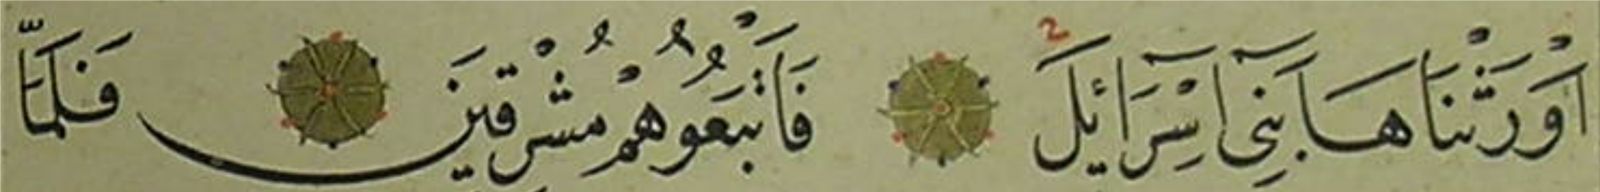 اَوْرَثْنَاهَا بَنِٓى اِسْرَٓائٖلَ فَاَتْبَعُوهُمْ مُشْرِقٖينَ فَلَمَّا